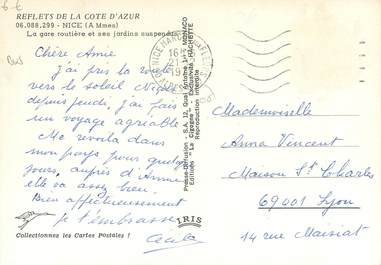 6 €
REFLETS DE LA COTE D'AZUR
06.088.299 - NICE (A Mmes)
La gare routière et ses jardins suspendus
Chère Amie
J'ai pris la route
vers le soleil
depuis jeudi, j'ai fais
un voyage agréable
Me revoila dans
mon pays pour quelques
jours, auprès d'Annie
elle va assez bien.
Bien affectueusement
je t'embrasse
Cécile
Collectionnez les Cartes Postales !
IRIS
NICE
16
21
19
MONACO
HACHETTE
Editions "La Cigogne"
Reproduction Interdite
Mademoiselle
Anna Vincent
Maison St Charles
69001 Lyon
14 rue Maisiat